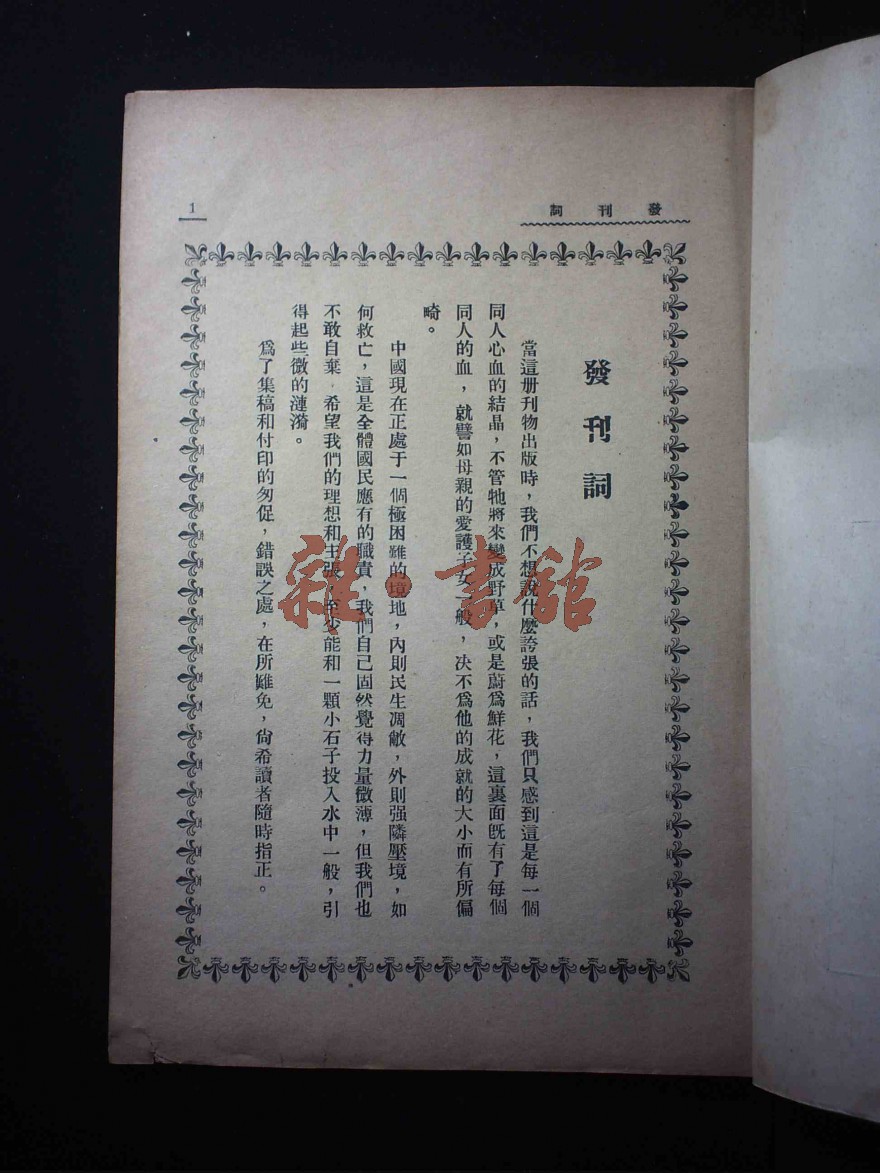 發刊詞
1
發刊詞
當這册刊物出版時，我們不想說什麼誇張的話，我們只感到這是每一個
同人心血的結晶，不管牠將來變成野草，或是蔚爲鮮花，這裏面旣有了每個
同人的血，就譬如母親的愛護子女一般，决不爲他的成就的大小而有所偏
畸。
中國現在正處于一個極困難的境地，內則民生凋敝，外則强隣壓境，如
何救亡，這是全體國民應有的職責，我們自己固然覺得力量微薄，但我們也
不敢自棄，希望我們的理想和主張，至少能和一顆小石子投入水中一般，引
得起些微的漣漪。
爲了集稿和付印的匆促，錯誤之處，在所難免，尙希讀者隨時指正。
雜·書館